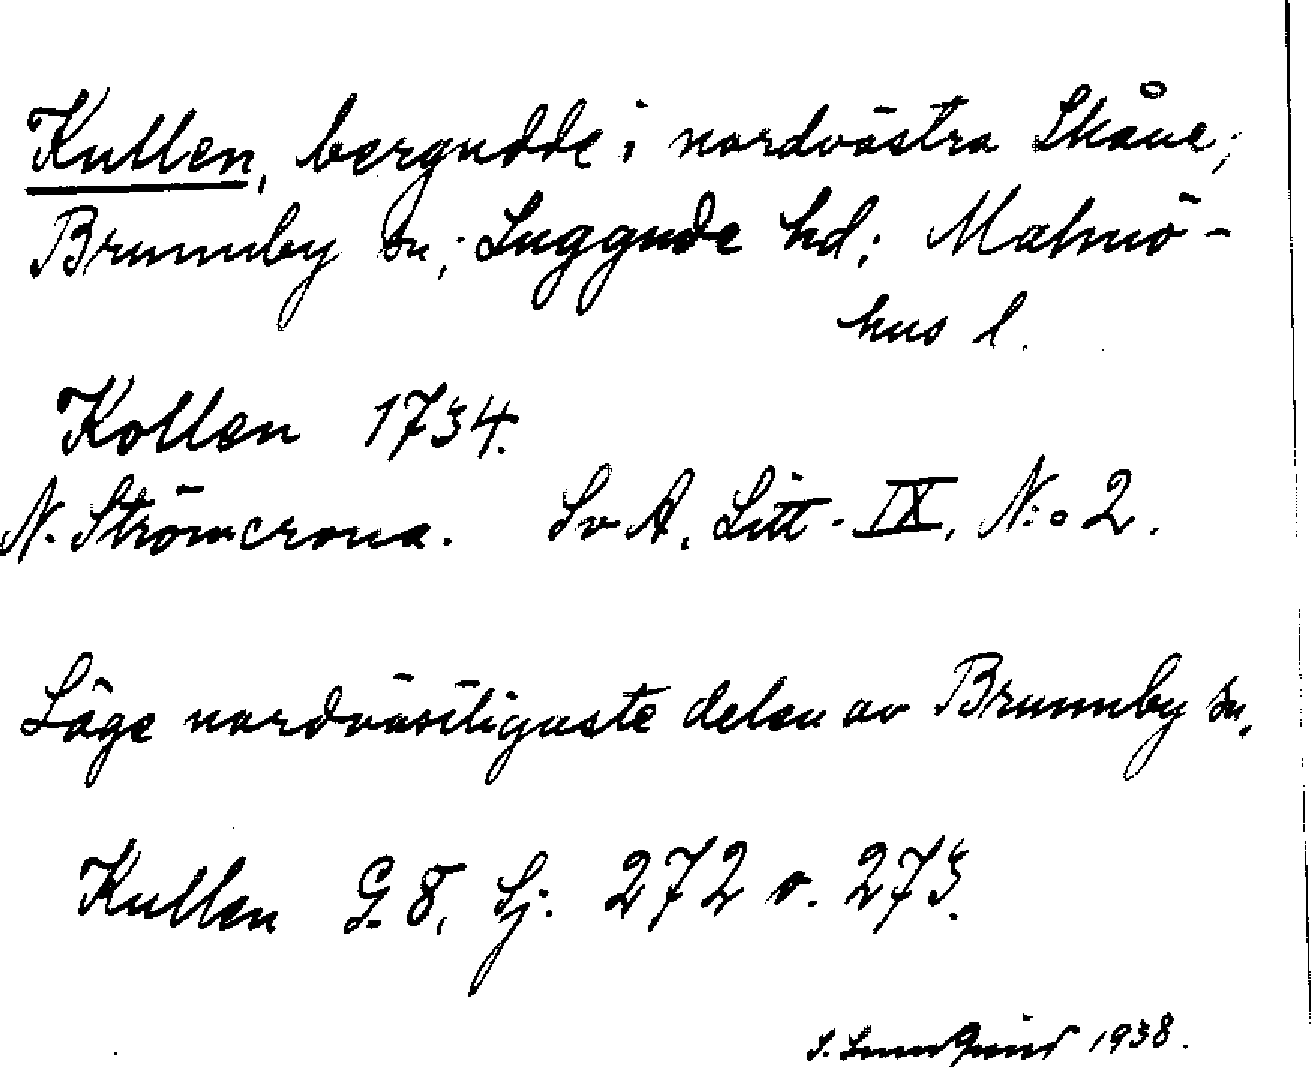 Kullen, bergudde i nordvästra Skåne;
Brunnby sn; Luggude hd; Malmö-
hus l.
Kollen 1734.
N. Strömcrona. Sv A, Litt. IX, N:o 2.
Läge nordvästligaste delen av Brunnby sn.
Kullen G. 8, Sj. 272 o. 273.
S. 1938.